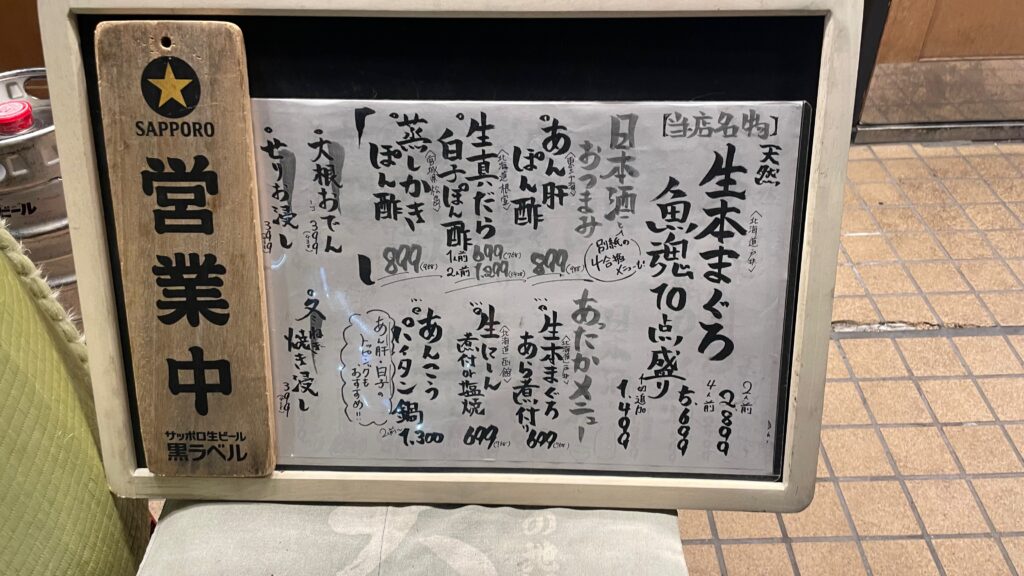 SAPPORO
営業中
サッポロ生ビール
黒ラベル
【当店名物】
天然
〈北海道戸井〉
生本まぐろ
魚魂10点盛り
2人前 2.899
4人前 5.699
1.409
日本酒
おつまみ
別紙の
4合瓶
メニュー
あん肝
ぽん酢
899
〈北海道根室〉
生真だら
白子ぽん酢
1人前 699
2人前 1.299
蒸しかき
ぽん酢
899
大根おでん
399
せりお浸し
399
あったかメニュー
〈北海道戸井〉
生本まぐろ
あら煮付
699
〈北海道函館〉
生にしん
煮付or塩焼
699
あんこう
パイタン鍋
1.300
あん肝・白子の
トッピングも
おすすめ!!
冬
焼き浸し
399
の地